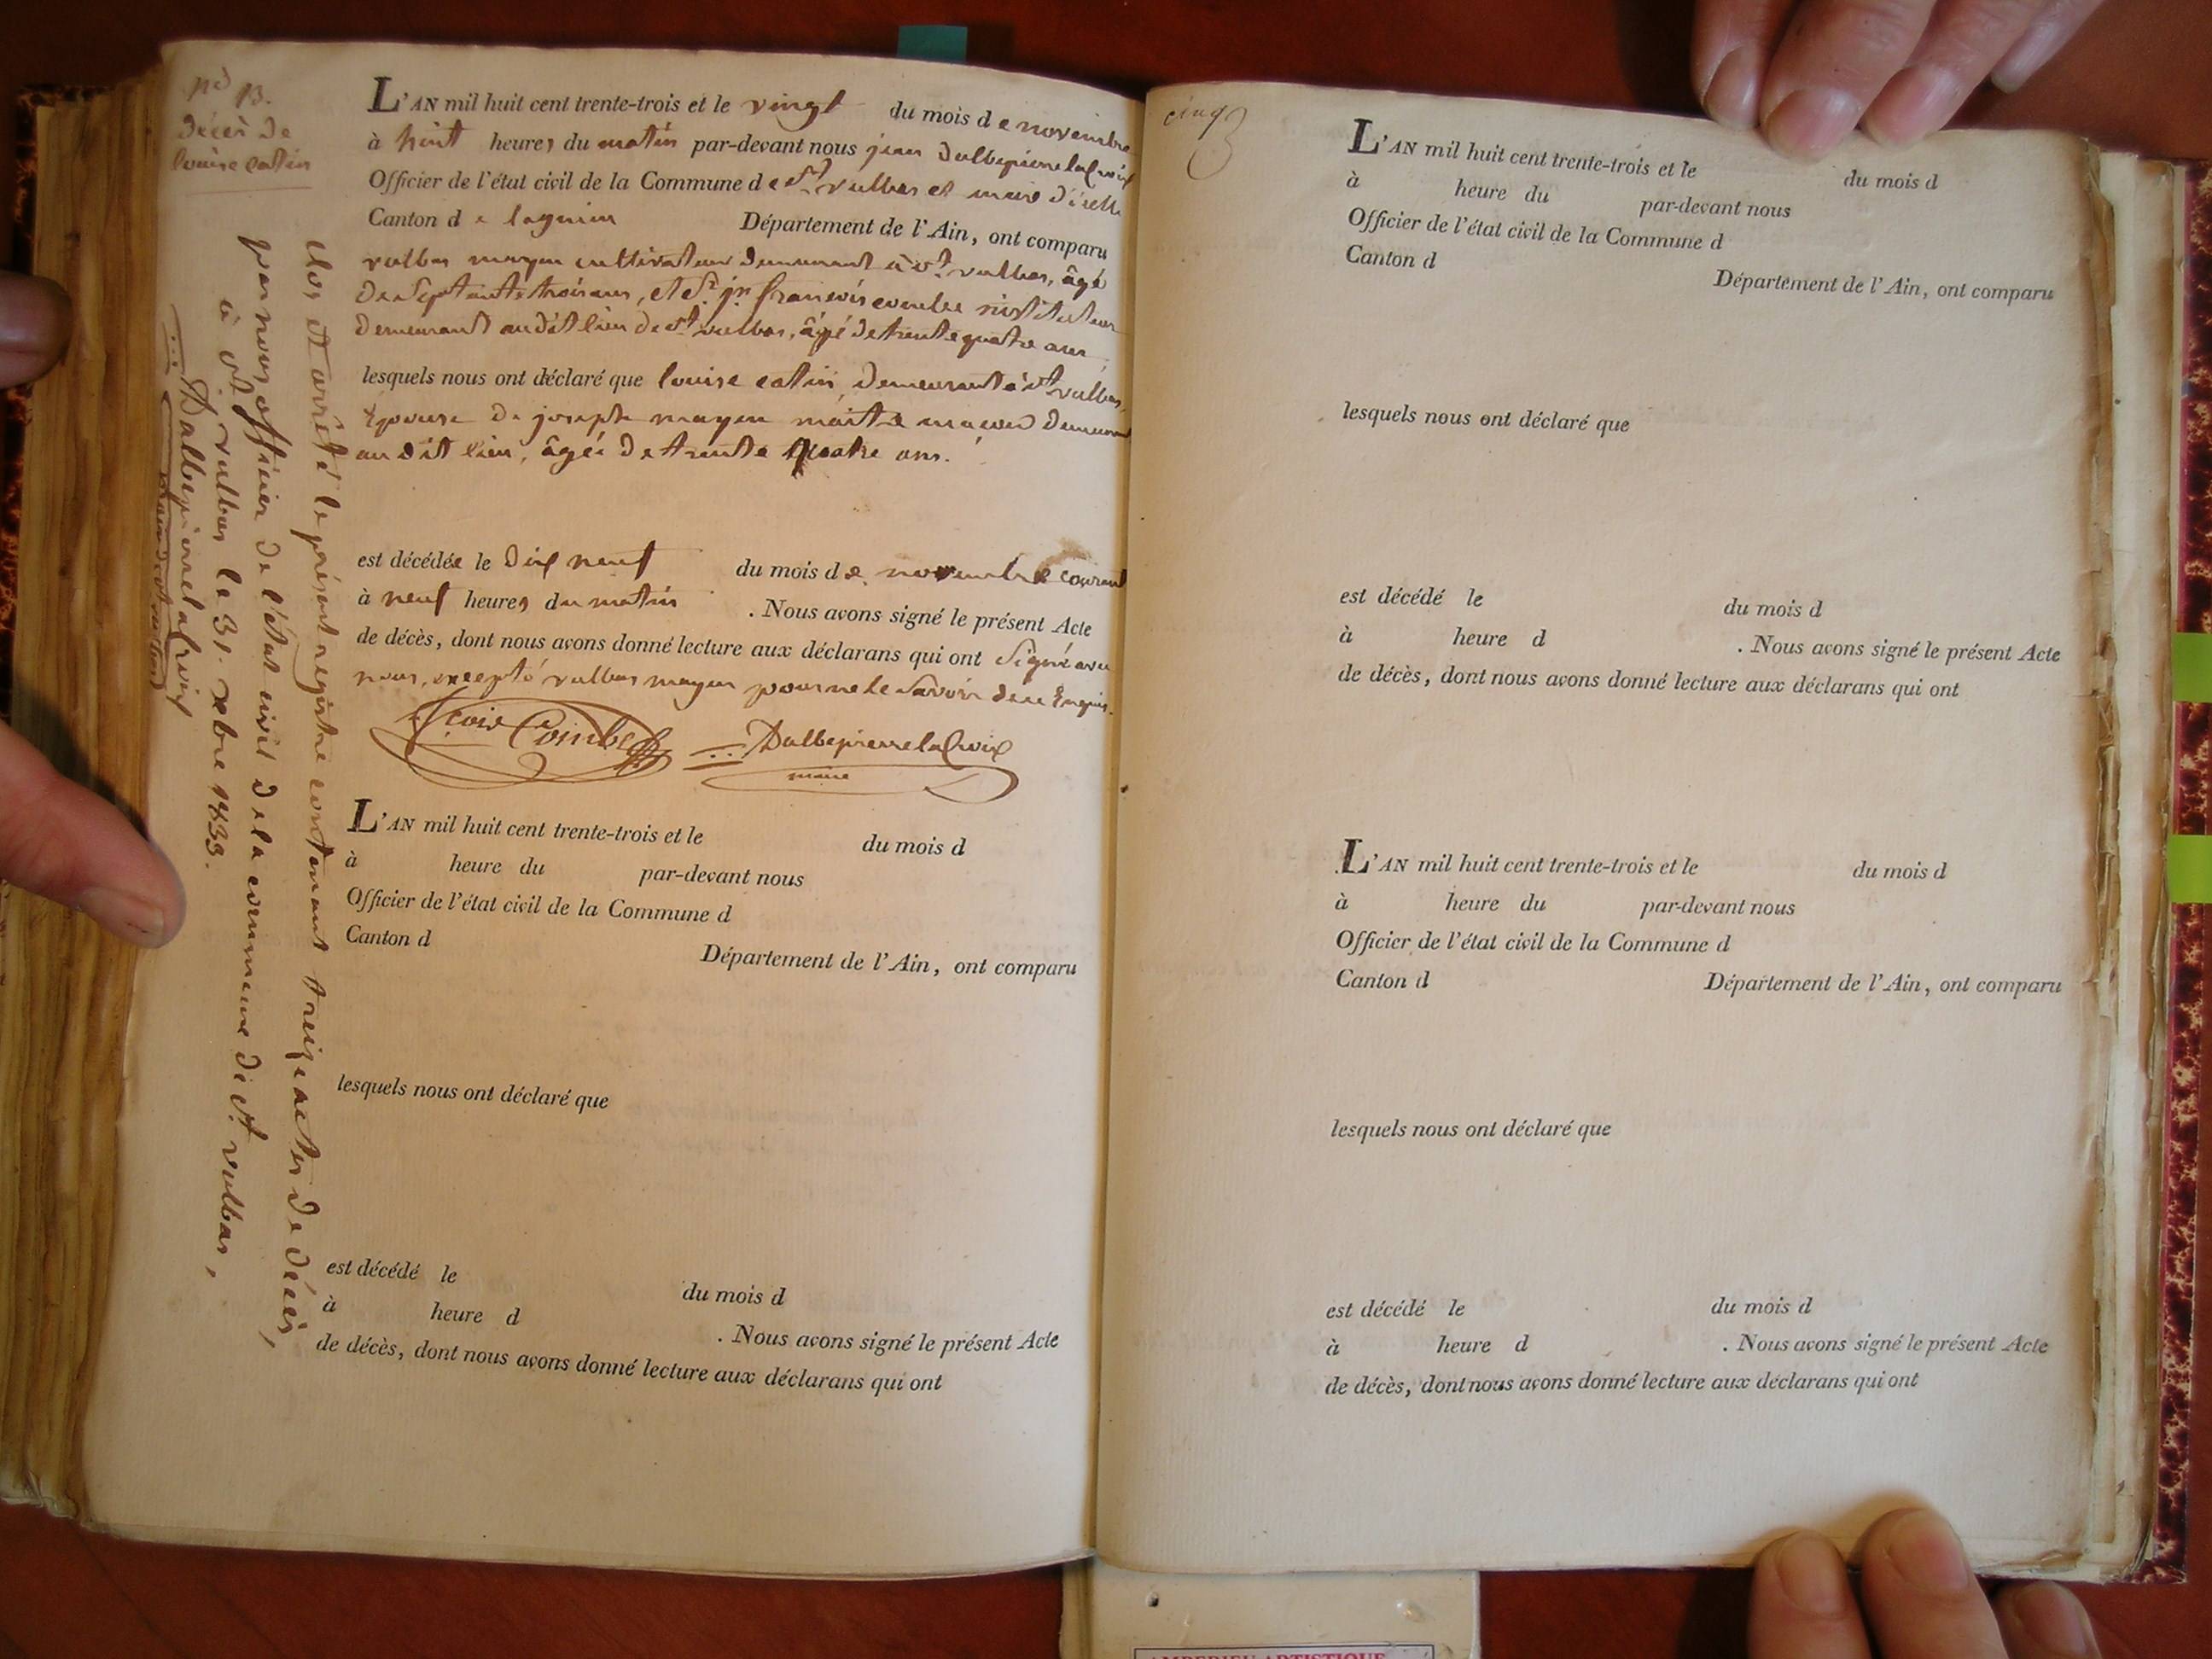 nd 13.
décès de
louise catin
L'AN mil huit cent trente-trois et le vingt du mois de novembre
à huit heures du matin par-devant nous jean dalbepierrelaCroix
Officier de l'état civil de la Commune de St. vulbas et maire d'icelle
Canton de lagnieu Département de l'Ain, ont comparu
vulbas mayen cultivateur demeurant à st. vulbas, âgé
de septante trois ans, et Sr. jn. francois combe institeur
demeurant au dit lieu de st vulbas, âgé de trente quatre ans
lesquels nous ont déclaré que louise catin, demeurant à st vulbas,
Epouse de joseph mayen maitre macon demeurant
au dit lieu, âgée de trente quatre ans.
est décédée le dix neuf du mois de novembre courant
à neuf heures du matin . Nous avons signé le présent Acte
de décès, dont nous avons donné lecture aux déclarans qui ont signé avec
nous, excepté vulbas mayen pour ne le savoir de ce Enquis.
Combe DalbepierrelaCroix
maire
Clos et arrêté le présent registre contenant treize actes de décès,
par nous officier de l'état civil de la commune de st. vulbas,
à st. vulbas le 31. xbre 1833.
DalbepierrelaCroix
maire de st vulbas
L'AN mil huit cent trente-trois et le du mois d
à heure du par-devant nous
Officier de l'état civil de la Commune d
Canton d Département de l'Ain, ont comparu
lesquels nous ont déclaré que
est décédé le du mois d
à heure d . Nous avons signé le présent Acte
de décès, dont nous avons donné lecture aux déclarans qui ont
cinq
L'AN mil huit cent trente-trois et le du mois d
à heure du par-devant nous
Officier de l'état civil de la Commune d
Canton d Département de l'Ain, ont comparu
lesquels nous ont déclaré que
est décédé le du mois d
à heure d . Nous avons signé le présent Acte
de décès, dont nous avons donné lecture aux déclarans qui ont
L'AN mil huit cent trente-trois et le du mois d
à heure du par-devant nous
Officier de l'état civil de la Commune d
Canton d Département de l'Ain, ont comparu
lesquels nous ont déclaré que
est décédé le du mois d
à heure d . Nous avons signé le présent Acte
de décès, dont nous avons donné lecture aux déclarans qui ont
AMBERIEU ARTISTIQUE